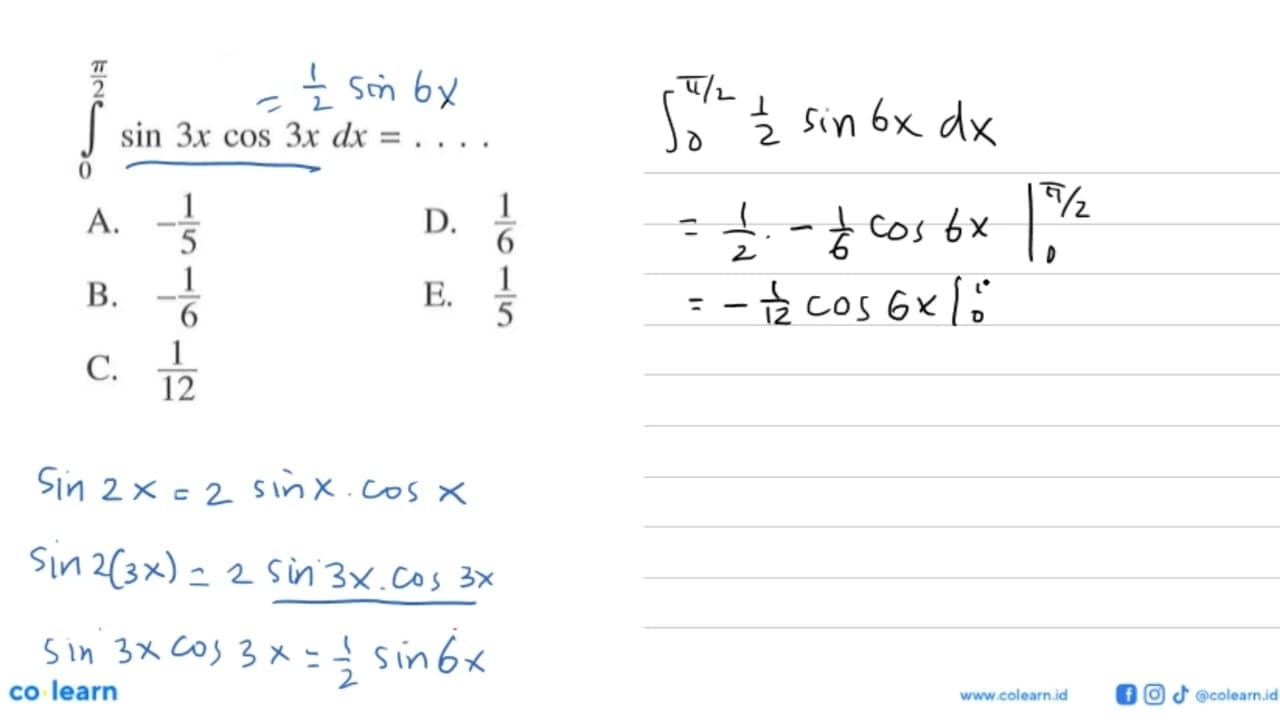 ∫₀^{π/2} sin 3x cos 3x dx = . . . .
= 1/2 sin 6x
A. -1/5
B. -1/6
C. 1/12
D. 1/6
E. 1/5
sin 2x = 2 sin x . cos x
sin 2(3x) = 2 sin 3x . cos 3x
sin 3x cos 3x = 1/2 sin 6x
∫₀^{π/2} 1/2 sin 6x dx
= 1/2 . - 1/6 cos 6x |₀^{π/2}
= - 1/12 cos 6x |₀
co learn
www.colearn.id
@colearn.id